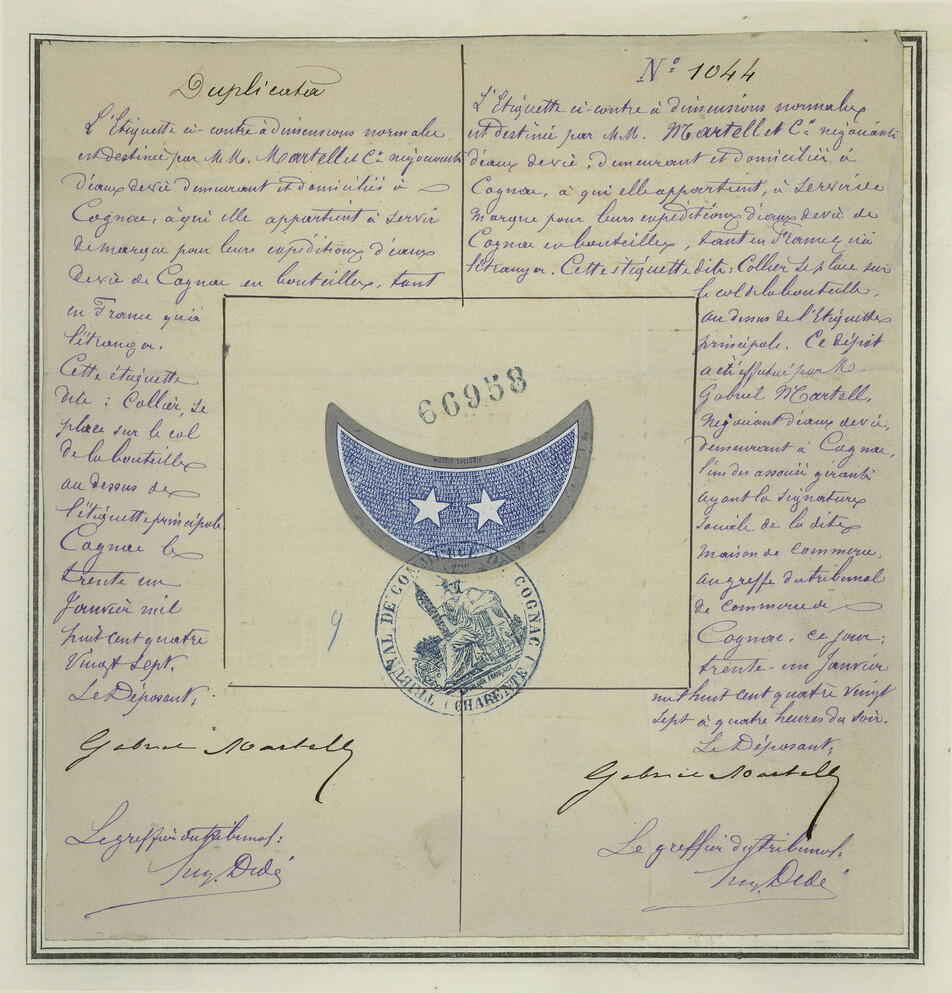 Duplicata
L'Etiquette ci-contre à dimensions normales
est destinée par M.M. Martell et Cie négociants
d'eaux de vie demeurant et domiciliés à
Cognac, à qui elle appartient à servir
de marque pour leurs expéditions d'eaux
de vie de Cognac en bouteilles, tant
en France qu'à
l'étranger.
Cette étiquette
dite : Collier, se
place sur le col
de la bouteille
au dessus de
l'étiquette principale
Cognac le
trente un
Janvier mil
huit cent quatre
Vingt Sept.
Le Déposant;
Gabriel Martell
Le greffier du tribunal:
Dedé
N° 1044
L'Etiquette ci-contre à dimensions normales
est destinée par M.M. Martell et Cie négociants
d'eaux de vie, demeurant et domiciliés à
Cognac, à qui elle appartient, à servir de
marque pour leurs expéditions d'eaux de vie de
Cognac en bouteilles, tant en France qu'à
l'étranger. Cette étiquette dite: Collier se place sur
le col de la bouteille,
au dessus de l'Etiquette
principale. Ce dépôt
a été effectué par M.
Gabriel Martell,
Négociant d'eaux de vie,
demeurant à Cognac,
l'un des associés gérants
ayant la signature
sociale de la dite
maison de commerce,
au greffe du tribunal
de commerce de
Cognac, ce jour;
trente-un Janvier
mil huit cent quatre vingt
sept à quatre heures du soir.
Le Déposant;
Gabriel Martell
Le greffier du tribunal:
Dedé
66958
9
TRIBUNAL DE COMMERCE DE COGNAC
(CHARENTE)